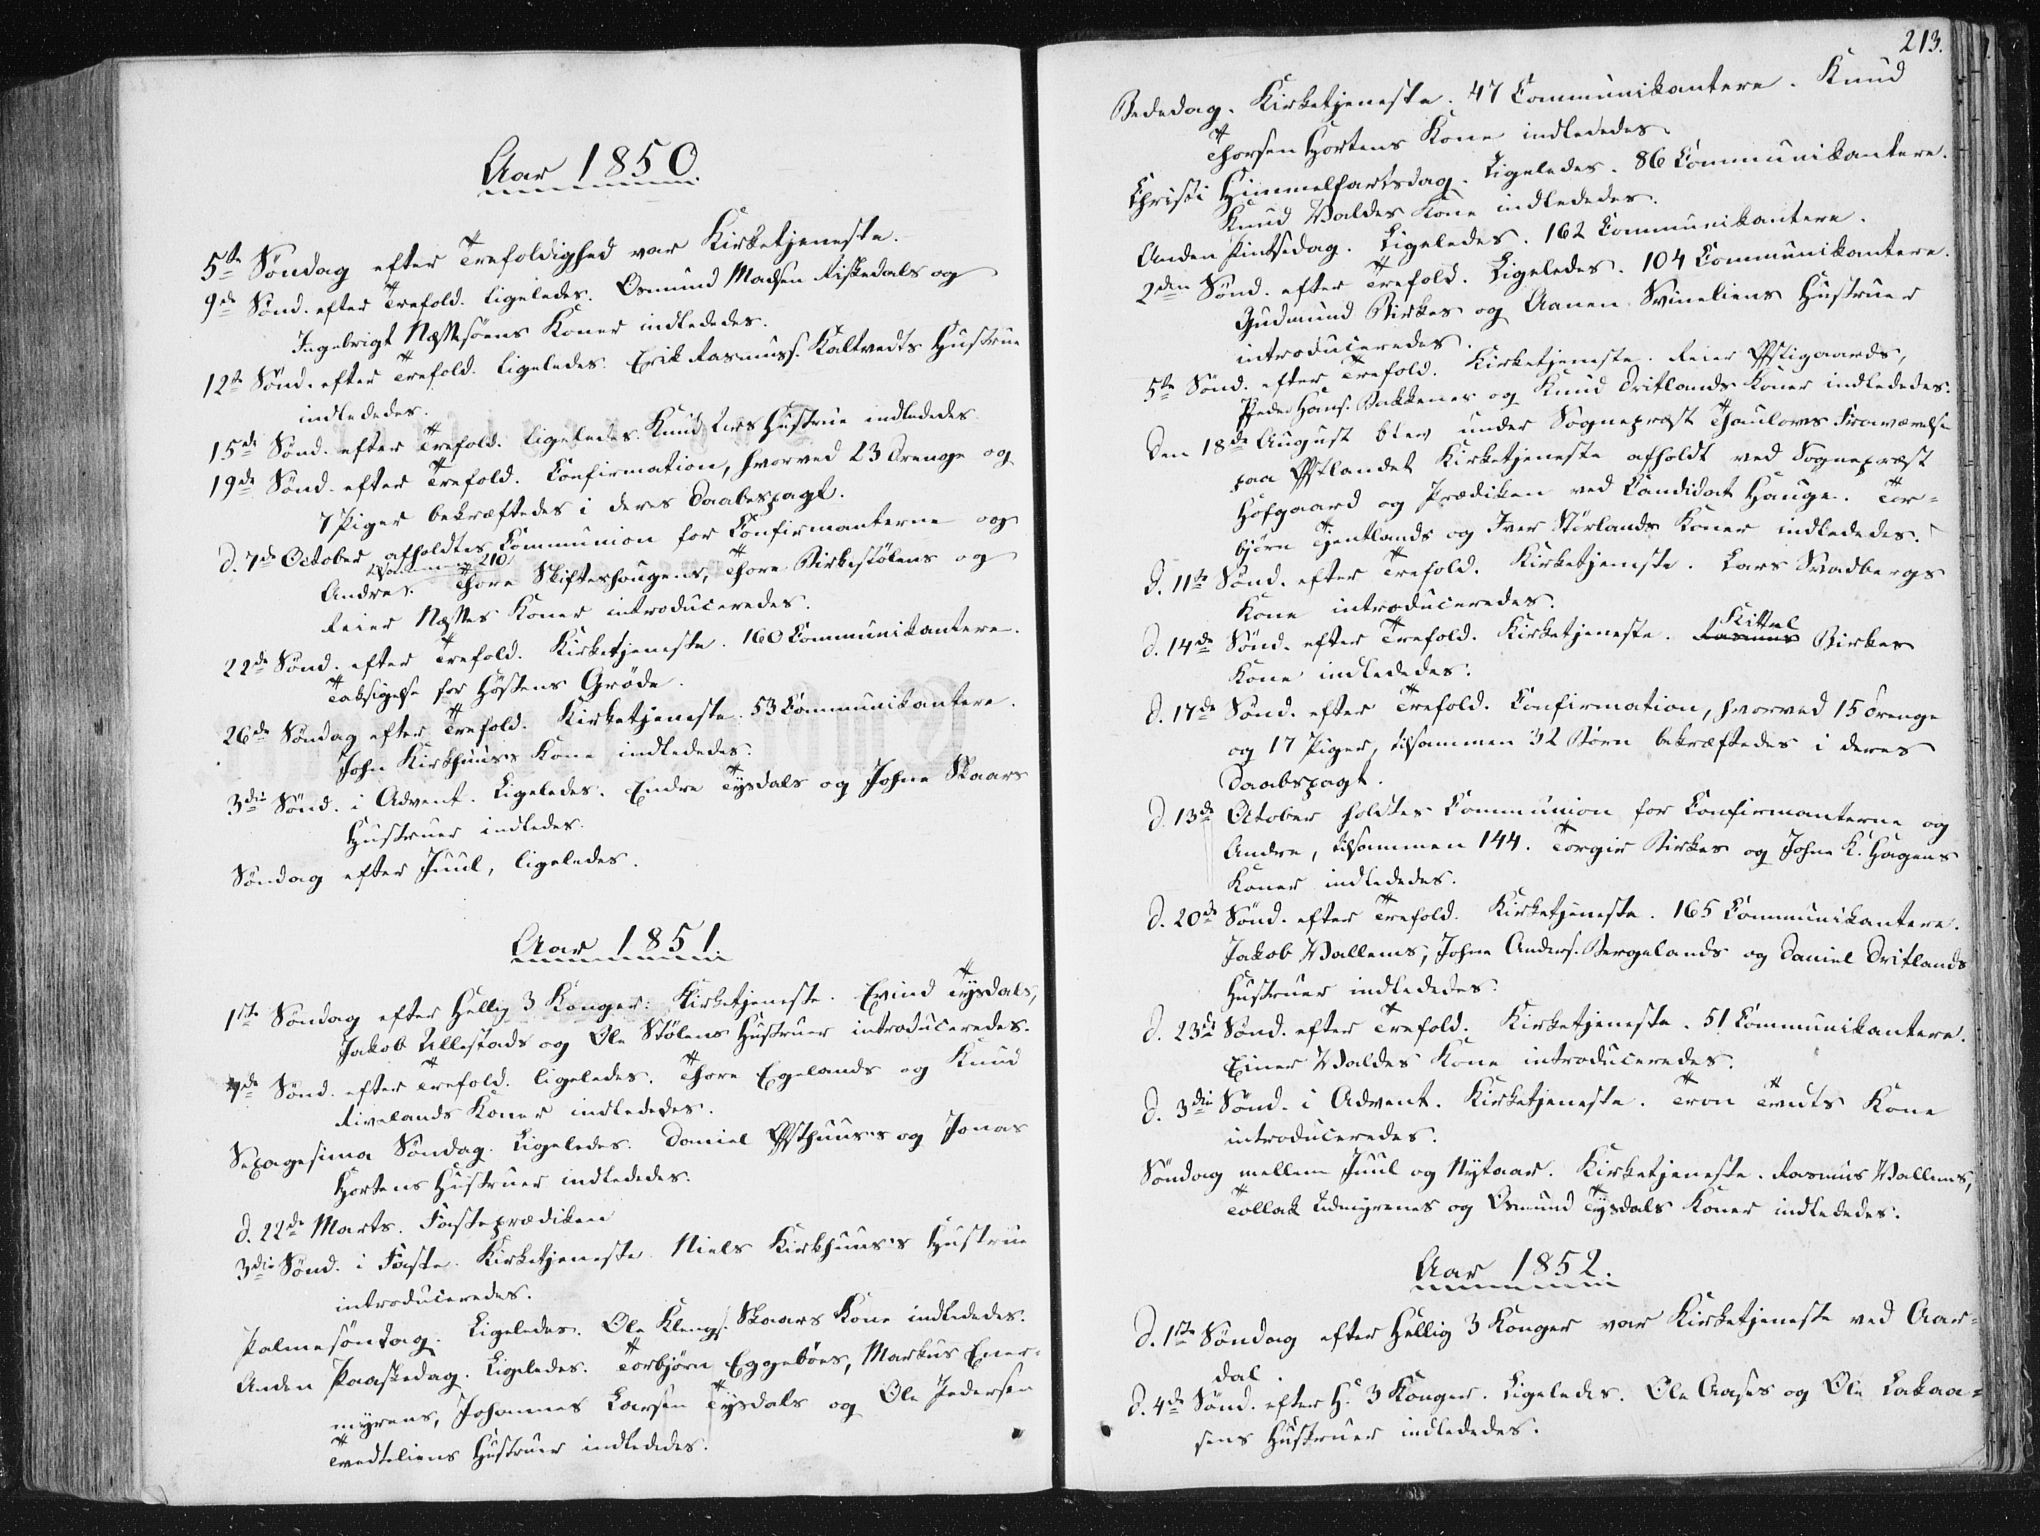 Aar 1850.
5te Søndag efter Trefoldighed var Kirketjeneste.
9de Sønd. efter Trefold. ligeledes. Osmund Madsen Riskedals og
Ingebrigt Næssøens Koner indlededes.
12te Sønd. efter Trefold. ligeledes. Erik Rasmuss. Kaltvedts Hustrue
indlededes.
15de Sønd. efter Trefold. ligeledes. Knud Lies Hustrue indlededes
19de Sønd. efter Trefold. Confirmation, hvorved 23 Drenge og
7 Piger bekræftedes i deres Daabspagt.
d. 7de October afholdtes Communion for Confirmanterne og
tilsammen 210
Andre. Thore Skifteshougens, Thore Birkestølens og
Reier Næsses Koner introduceredes.
22de Sønd. efter Trefold. Kirketjeneste. 160 Communikantere.
Taksigelse for Høstens Grøde.
26de Søndag efter Trefold. Kirketjeneste. 53 Communikantere.
John Kirkhuus's Kone indlededes.
3die Sønd. i Advent. Ligeledes. Endre Tysdals og Johne Skaars
Hustruer indledes.
Søndag efter Juul, ligeledes.
Aar 1851.
1ste Søndag efter Hellig 3 Konger: Kirketjeneste. Evind Tysdals,
Jakob Ullestads og Ole Stølens Hustruer introduceredes.
4de Sønd. efter Trefold. ligeledes. Thore Egelands og Knud
Rivelands Koner indlededes.
Sexagesima Søndag. Ligeledes. Daniel Østhuus's og Jonas
Hortens Hustruer indlededes.
d. 22de Marts. Fasteprædiken
3die Sønd. i Faste. Kirketjeneste. Niels Kirkhuus's Hustrue
introduceredes.
Palmesøntag. Ligeledes. Ole Klengs. Skaars Kone indlededes.
Anden Paaskedag. Ligeledes. Torbjørn Eggebøes, Markus Ener-
myrens, Johannes Larsen Tysdals og Ole Pedersen
Tvedteliens Hustruer indlededes.
213.
Bededag. Kirketjeneste. 47 Communikantere. Knud
Thorsen Hortens Kone indlededes.
Christi Himmelfartsdag. Ligeledes. 86 Communikantere.
Knud Valdes Kone indlededes.
Anden Pintsedag. Ligeledes. 162 Communikantere.
2den Sønd. efter Trefold. Ligeledes. 104 Communikantere.
Gudmund Birkes og Aanen Svineliens Hustruer
introduceredes.
5te Sønd. efter Trefold. Kirketjeneste. Reier Østigaards,
Peder Hans. Bakkenes og Knud Dritlands Koner indlededes.
Den 18de August blev under Sognepræst Thaulows Fraværelse
paa Østlandet Kirketjeneste afholdt ved Sognepræst
Hofgaard og Prædiken ved Candidat Hauge. Tor-
bjørn Tjentlands og Iver Størlands Koner indlededes.
d. 11te Sønd. efter Trefold. Kirketjeneste. Lars Svadbergs
Kone introduceredes.
d. 14de Sønd. efter Trefold. Kirketjeneste. Rasmus Kittel Birkes
Kone indlededes.
d. 17de Sønd. efter Trefold. Confirmation, hvorved 15 Drenge
og 17 Piger, tilsammen 32 Børn bekræftedes i deres
Daabspagt.
d. 13de October holdtes Communion for Confirmanterne og
Andre, tilsammen 144. Torgir Birkes og Johne K. Hagens
Koner indlededes.
d. 20de Sønd. efter Trefold. Kirketjeneste. 165 Communikantere.
Jakob Vallems, Johne Anders. Bergelands og Daniel Dritlands
Hustruer indlededes.
d. 23de Sønd. efter Trefold. Kirketjeneste. 51 Communikantere.
Einer Valdes Kone introduceredes.
d. 3die Sønd. i Advent. Kirketjeneste. Tron Tveits Kone
introduceredes.
Søndag mellem Juul og Nytaar. Kirketjeneste. Rasmus Vallems,
Tollak Lidmyrenes og Osmund Tysdals Koner indlededes.
Aar 1852.
d. 1ste Søndag efter Hellig 3 Konger var Kirketjeneste ved Aar-
dal.
d. 4de Sønd. efter H. 3 Konger. Ligeledes. Ole Aases og Ole Lakaa-
sens Hustruer indlededes.